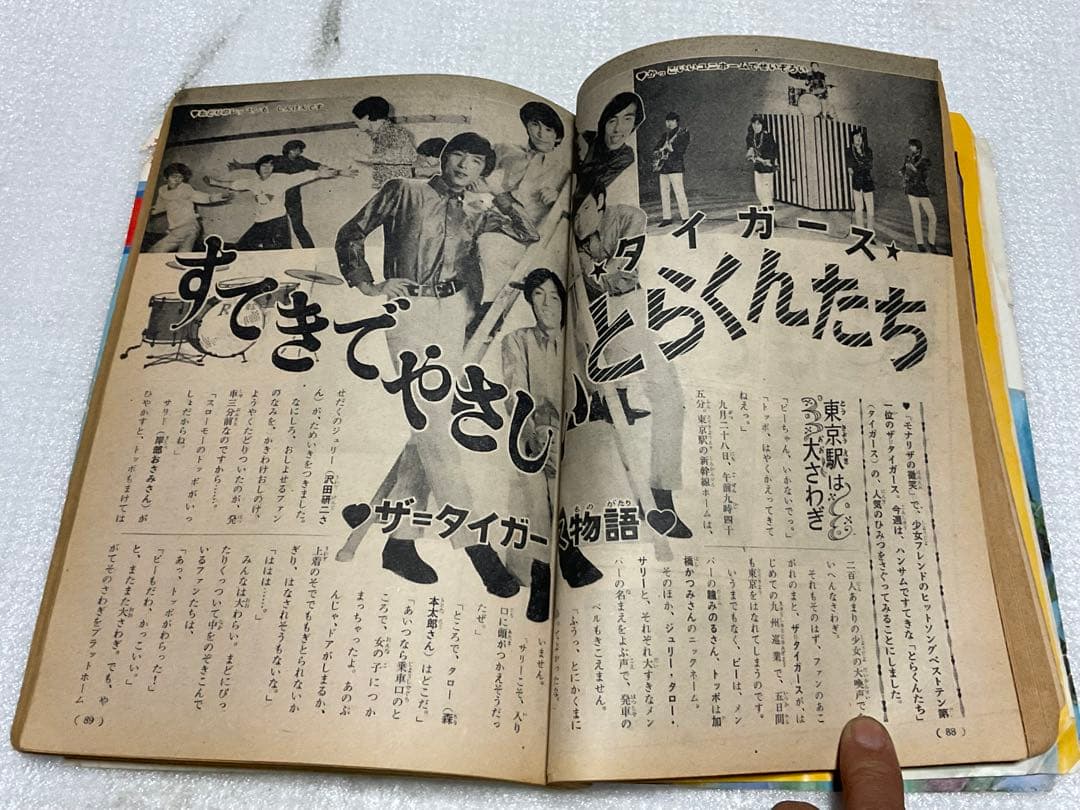 ♥かっこいいユニホームでせいぞろい
★タイガース★
とらくんたち
♥「モナリザの微笑」で、少女フレンドのヒットソングベストテン第
一位のザ=タイガース。今週は、ハンサムですてきな「とらくんたち」
(タイガース)の、人気のひみつをさぐってみることにしました。
東京駅は
大さわぎ
「ピーちゃん、いかないでっ。」
「トッポ、はやくかえってきて
ねえっ。」
九月二十八日、午前九時四十
五分。東京駅の新幹線ホームは、
二百人あまりの少女の大喚声で
いへんなさわぎ。
それもそのはず、ファンのあこ
がれのまと、ザ=タイガースがは
じめての九州巡業で、五日間
も東京をはなれてしまうのです。
いうまでもなく、ピーは、メン
バーの瞳みのるさん、トッポは加
橋かつみさんのニックネーム。
そのほか、ジュリー・タロー・
サリーと、それぞれ大すきなメン
バーの名まえをよぶ声で、発車の
ベルもきこえません。
「ふうっ、とにかくまに
(88)
♥おどりのレッスンも、しんけんです
すてきでやさしい
♥ザ=タイガース物語♥
せだくのジュリー(沢田研二さ
ん)が、ためいきをつきました。
なにしろ、おしよせるファン
のなみを、かきわけおしのけ、
ようやくたどりついたのが、発
車三分前なのですから……。
「スローモーのトッポがいっ
しょだからね。」
サリー(岸部おさみさん)が
ひやかすと、トッポもまけては
いません。
「サリーこそ、入り
口に頭がつかえそうだっ
たぜ。」
「ところで、タロー(森
本太郎さん)はどこだ。」
「あいつなら乗車口のと
ころで、女の子につか
まっちゃったよ。あのぶ
んじゃ、ドアがしまるか、
上着のそででももぎとられないか
ぎり、はなされそうもないな。」
「ははは……。」
みんなは大わらい。まどにぴっ
たりくっついて中をのぞきこんで
いるファンたちは、
「あっ、トッポがわらった!」
「ピーもだわ、かっこいい。」
と、またまた大さわぎ。でも、や
がてそのさわぎをプラットホーム
(89)